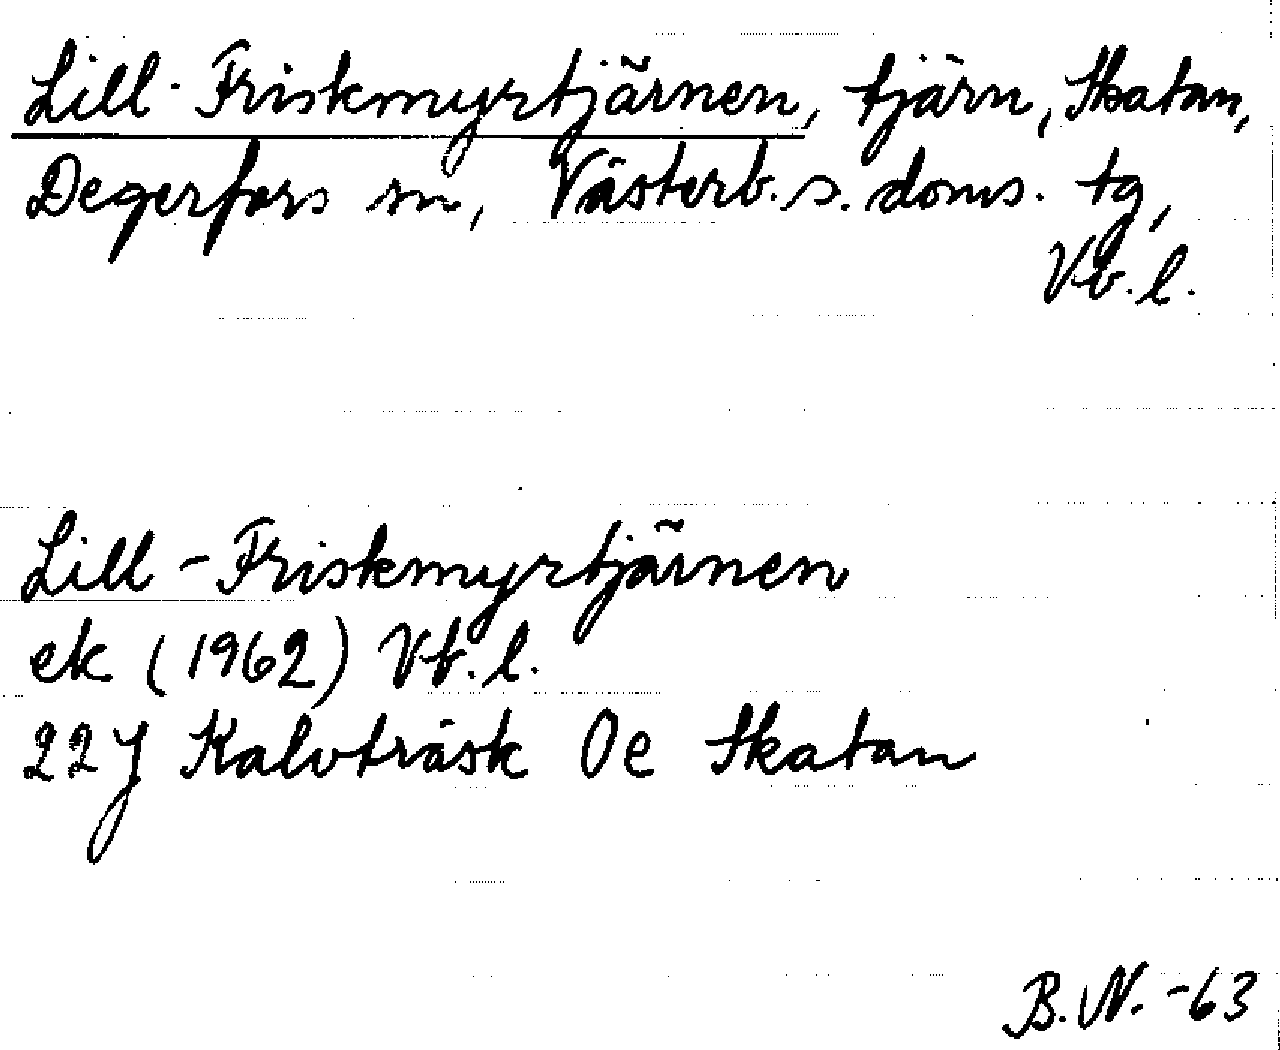 Lill-Friskmyrtjärnen, tjärn, Skatan,
Degerfors sn, Västerb. s. doms. tg,
Vb. l.
Lill-Friskmyrtjärnen
ek (1962) Vb. l.
22J Kalvträsk 0e Skatan
B.N. -63